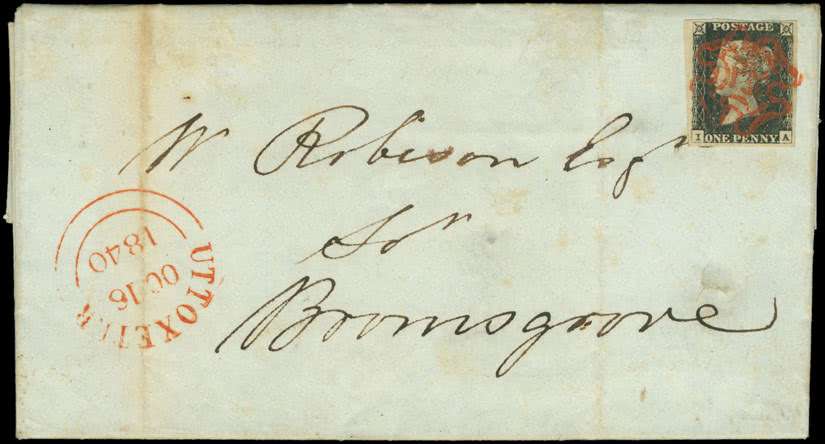 POSTAGE
I A
ONE PENNY
W Robison Esqr
Solr
Bromsgrove
UTTOXETER
OC 16
1840